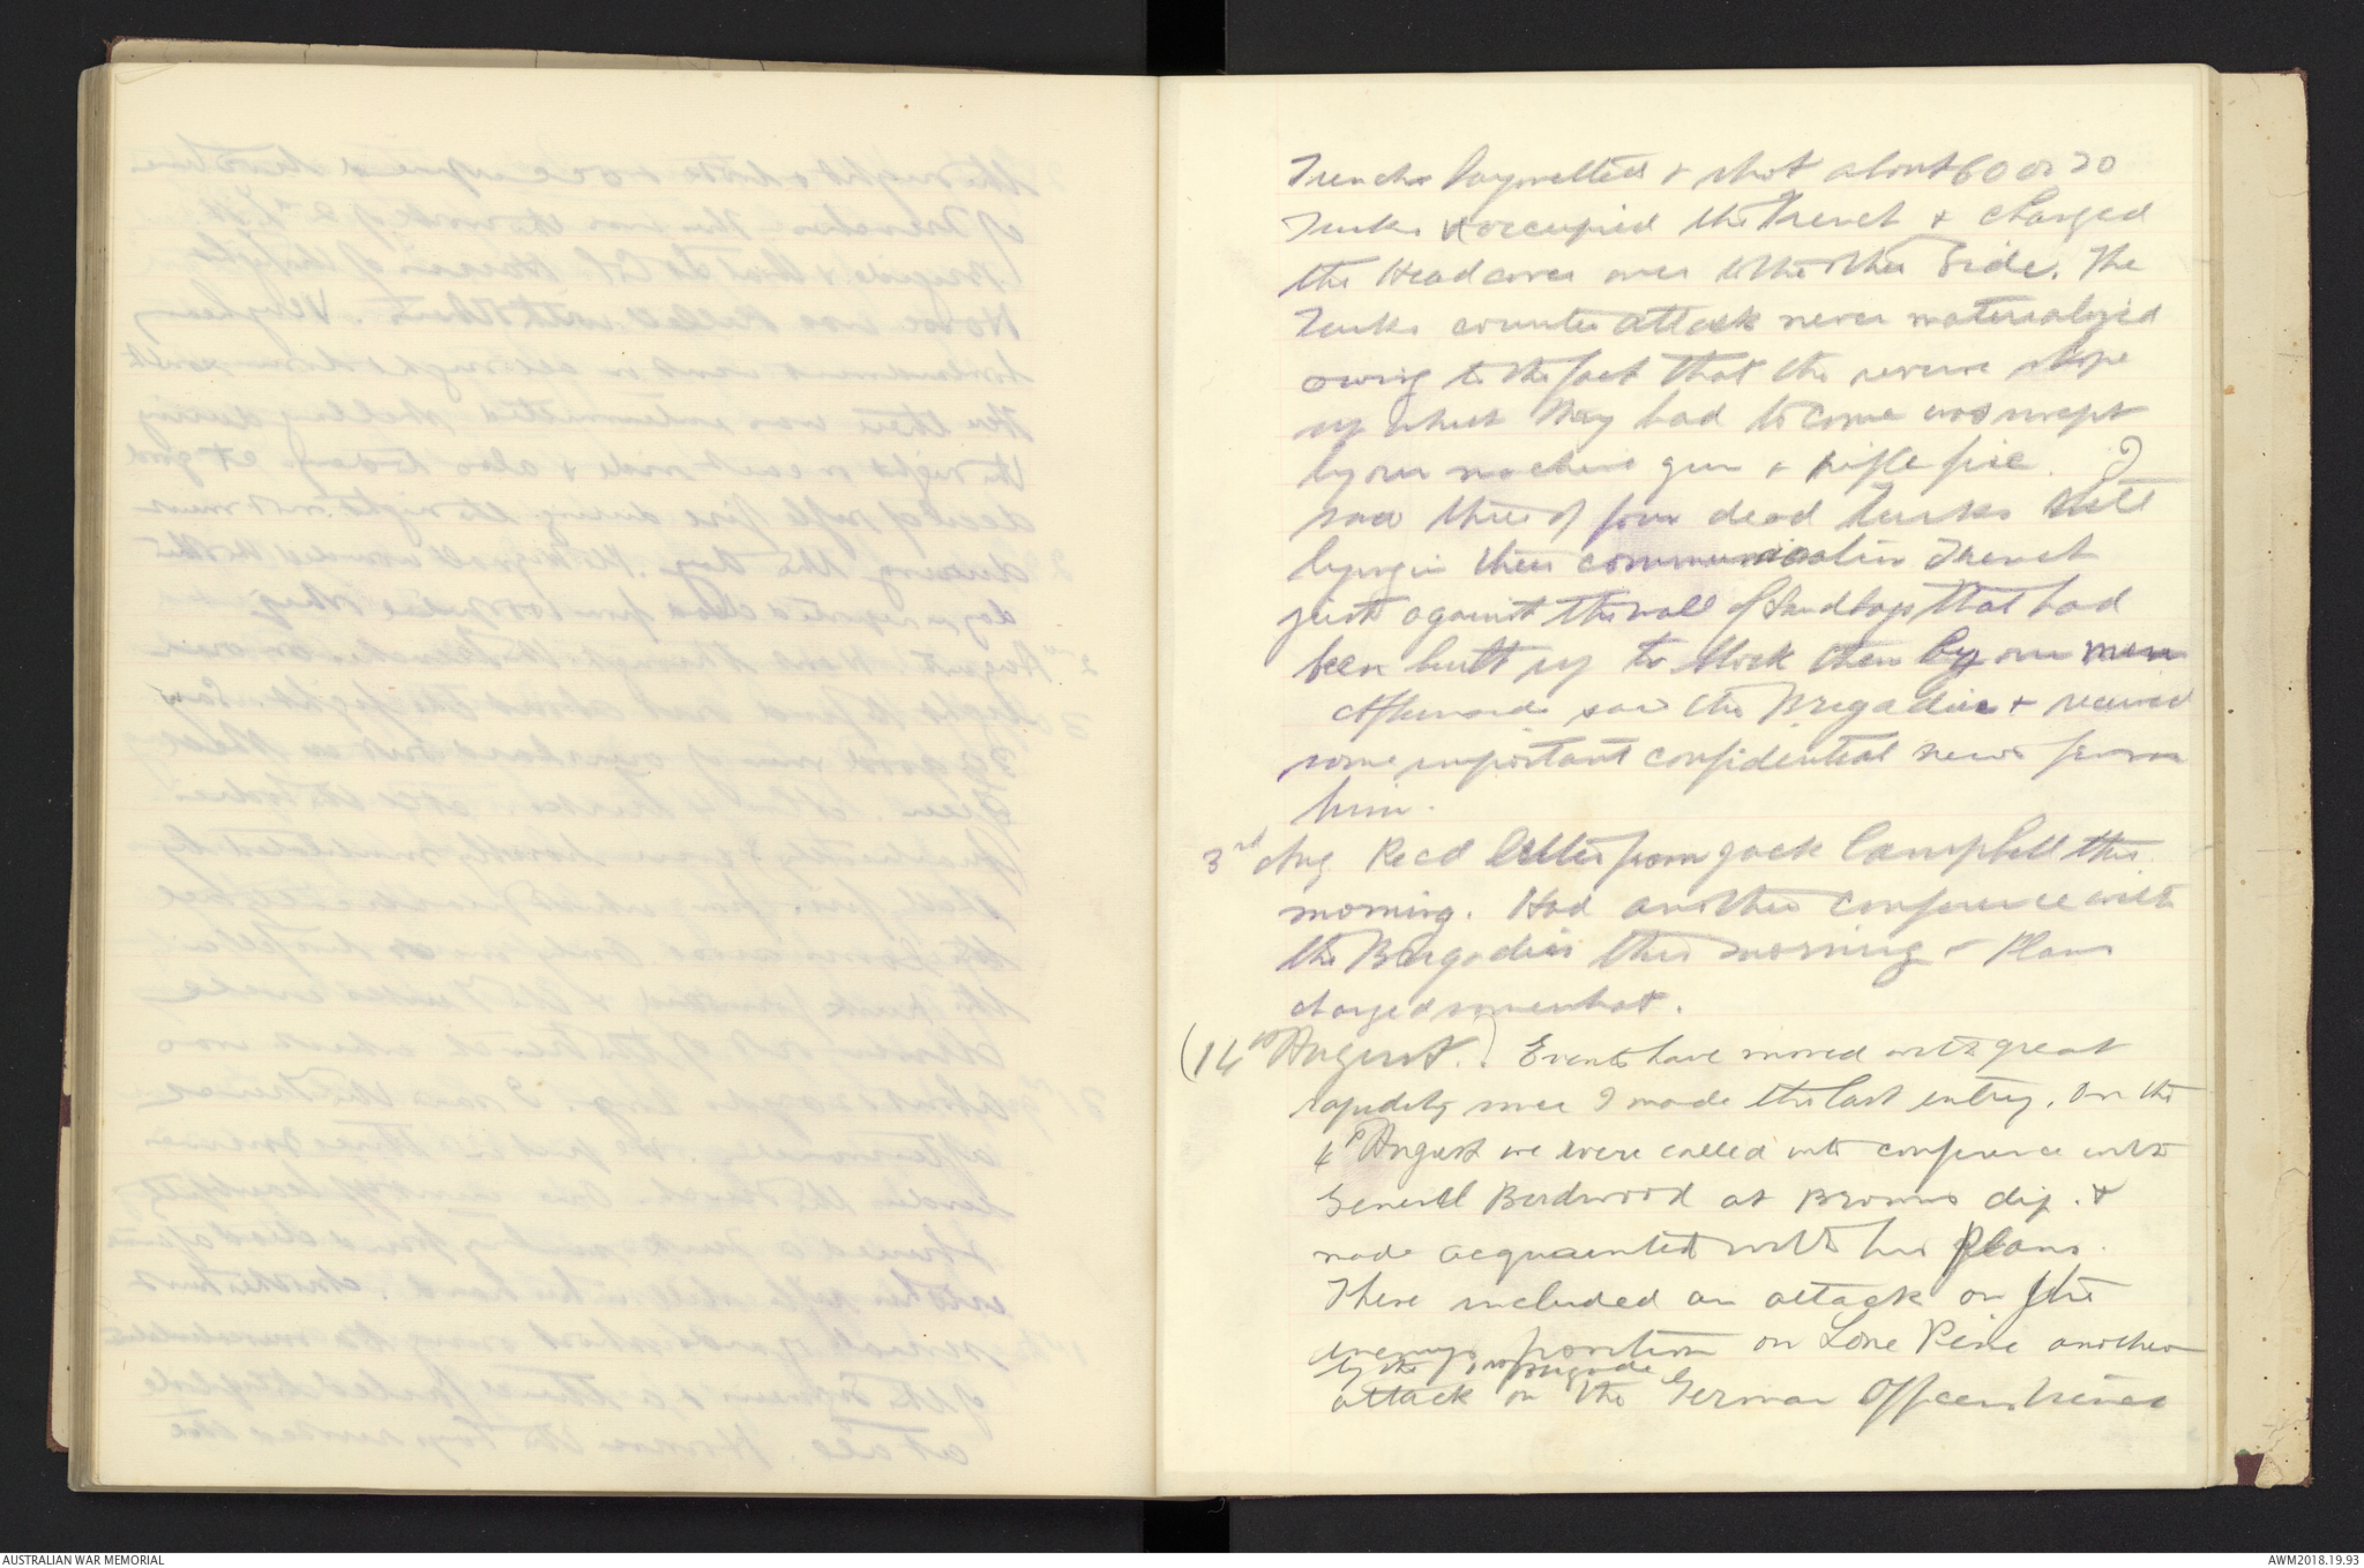 Trenches bayonetted & shot about 60 or 70
Turks & occupied the Trench & changed
the Head cover over to the other side. The
Turks counter attack never materialized
owing to the fact that the reverse slope
up which they had to come was swept
by our machine gun & rifle fire. I
saw three or four dead Turks still
lying in their communication Trench
just against the wall of Sandbags that had
been built up to block them by our men
Afterwards saw the Brigadier & received
some important confidential news from
him.
3rd Aug Recd letter from Jack Campbell this
morning. Had another conference with
the Brigadier this morning - Plans
changed somewhat.
(14th August.) Events have moved with great
rapidity since I made the last entry. On the
4th August we were called into conference with
General Birdwood at Browns dip. &
made acquainted with his plans.
These included an attack on the
enemys position on Lone Pine another
by the Brigade
attack on the German Officers trench
AUSTRALIAN WAR MEMORIAL
AWM2018.19.93